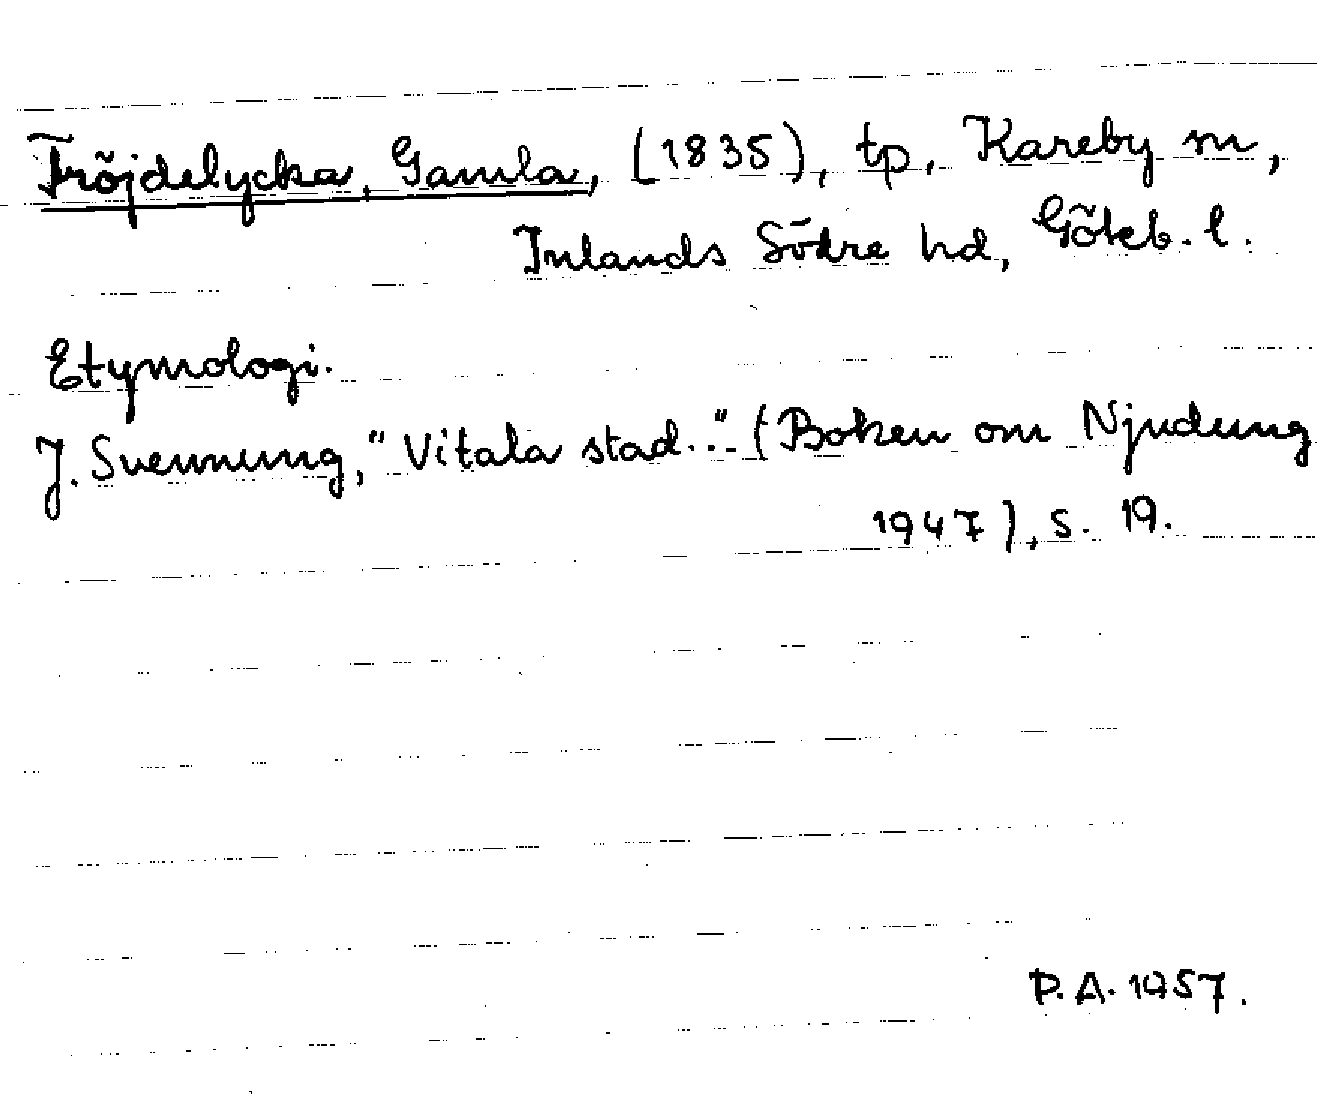 Fröjdelycka, Gamla, (1835), tp, Kareby sn,
Inlands Södre hd, Göteb. l.
Etymologi.
J. Svennung, "Vitala stad.." (Boken om Njudung
1947), s. 19.
P.A. 1957.